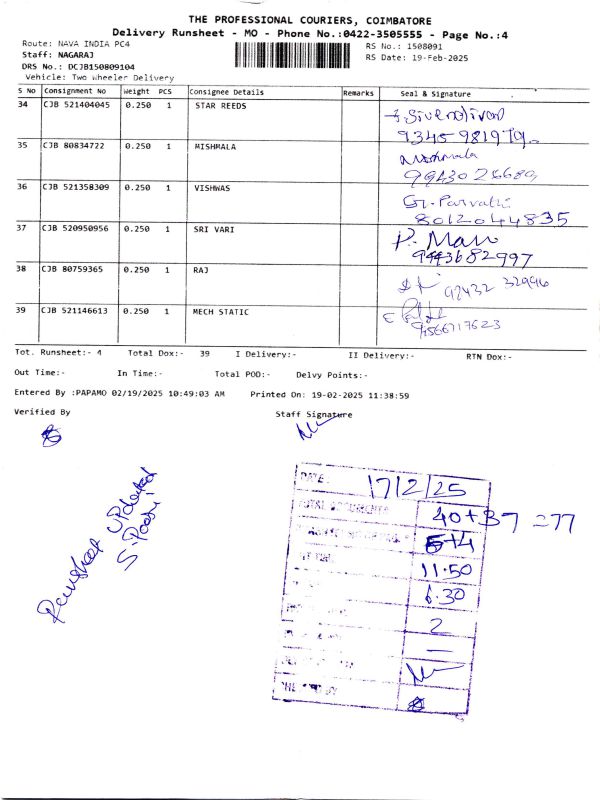 THE PROFESSIONAL COURIERS, COIMBATORE
Delivery Runsheet - MO - Phone No.:0422-3505555 - Page No.:4
Route: NAVA INDIA PC4
RS No.: 1508091
Staff: NAGARAJ
RS Date: 19-Feb-2025
DRS No.: DCJB150809104
Vehicle: Two Wheeler Delivery
S No Consignment No Weight PCS Consignee Details Remarks Seal & Signature
34 CJB 521404045 0.250 1 STAR REEDS
35 CJB 80834722 0.250 1 MISHMALA Mishmala
36 CJB 521358309 0.250 1 VISHWAS G. Parvathi
8012044835
37 CJB 520950956 0.250 1 SRI VARI P. Mani
9443682997
38 CJB 80759365 0.250 1 RAJ 92432 32996
39 CJB 521146613 0.250 1 MECH STATIC
9566717623
Tot. Runsheet:- 4 Total Dox:- 39 I Delivery:- II Delivery:- RTN Dox:-
Out Time:- In Time:- Total POD:- Delvy Points:-
Entered By :PAPAMO 02/19/2025 10:49:03 AM Printed On: 19-02-2025 11:38:59
Verified By Staff Signature
Runsheet Updated
DATE: 17/2/25
TOTAL DOCUMENTS 40+37 =77
5+4
11.50
6.30
2
—